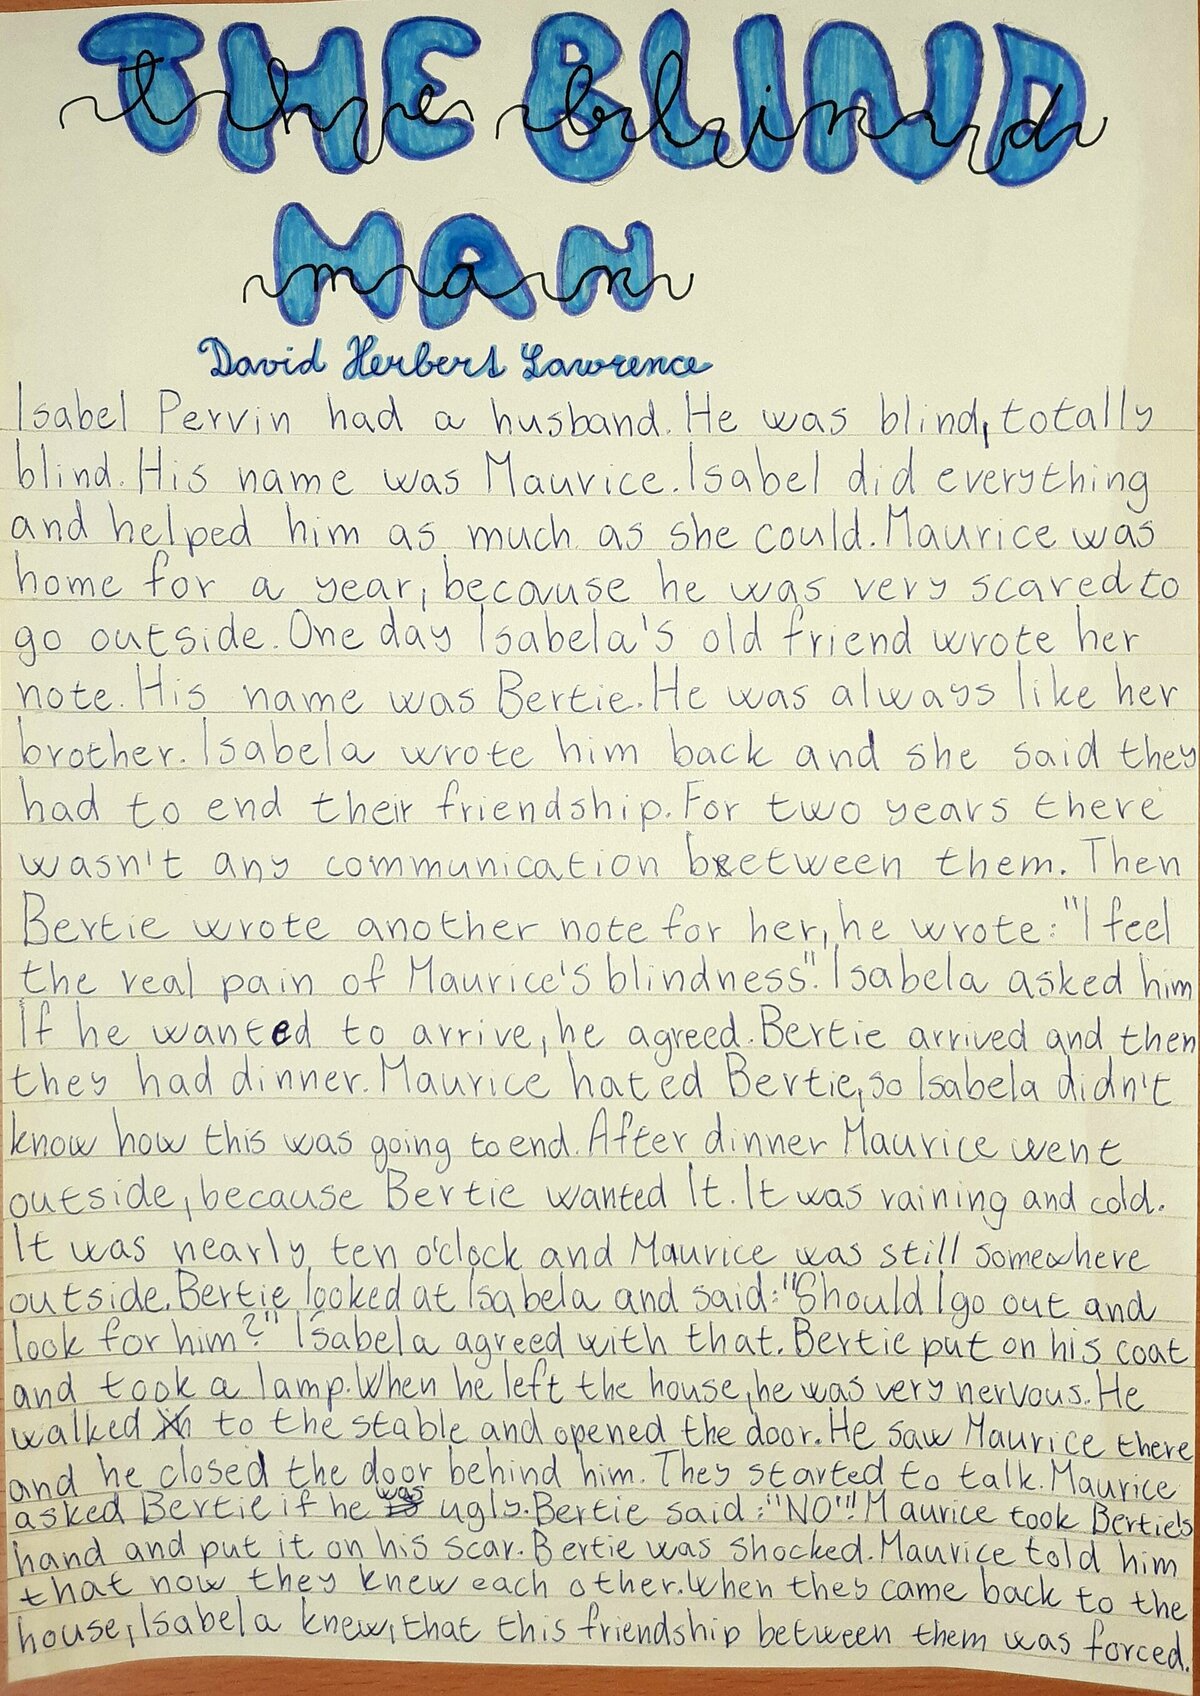 THE BLIND
the blind
MAN
man
David Herbert Lawrence
Isabel Pervin had a husband. He was blind, totally
blind. His name was Maurice. Isabel did everything
and helped him as much as she could. Maurice was
home for a year, becouse he was very scared to
go outside. One day Isabela's old friend wrote her
note. His name was Bertie. He was always like her
brother. Isabela wrote him back and she said they
had to end their friendship. For two years there
wasn't any communication between them. Then
Bertie wrote another note for her, he wrote: "I feel
the real pain of Maurice's blindness". Isabela asked him
If he wanted to arrive, he agreed. Bertie arrived and then
they had dinner. Maurice hated Bertie, so Isabela didn't
know how this was going to end. After dinner Maurice went
outside, because Bertie wanted It. It was raining and cold.
It was nearly ten o'clock and Maurice was still somewhere
outside. Bertie looked at Isabela and said: "Should I go out and
look for him?" Isabela agreed with that. Bertie put on his coat
and took a lamp. When he left the house, he was very nervous. He
walked to the stable and opened the door. He saw Maurice there
and he closed the door behind him. They started to talk. Maurice
asked Bertie if he was ugly. Bertie said: "NO"! Maurice took Bertie's
hand and put it on his scar. Bertie was shocked. Maurice told him
that now they knew each other. When they came back to the
house, Isabela knew, that this friendship between them was forced.